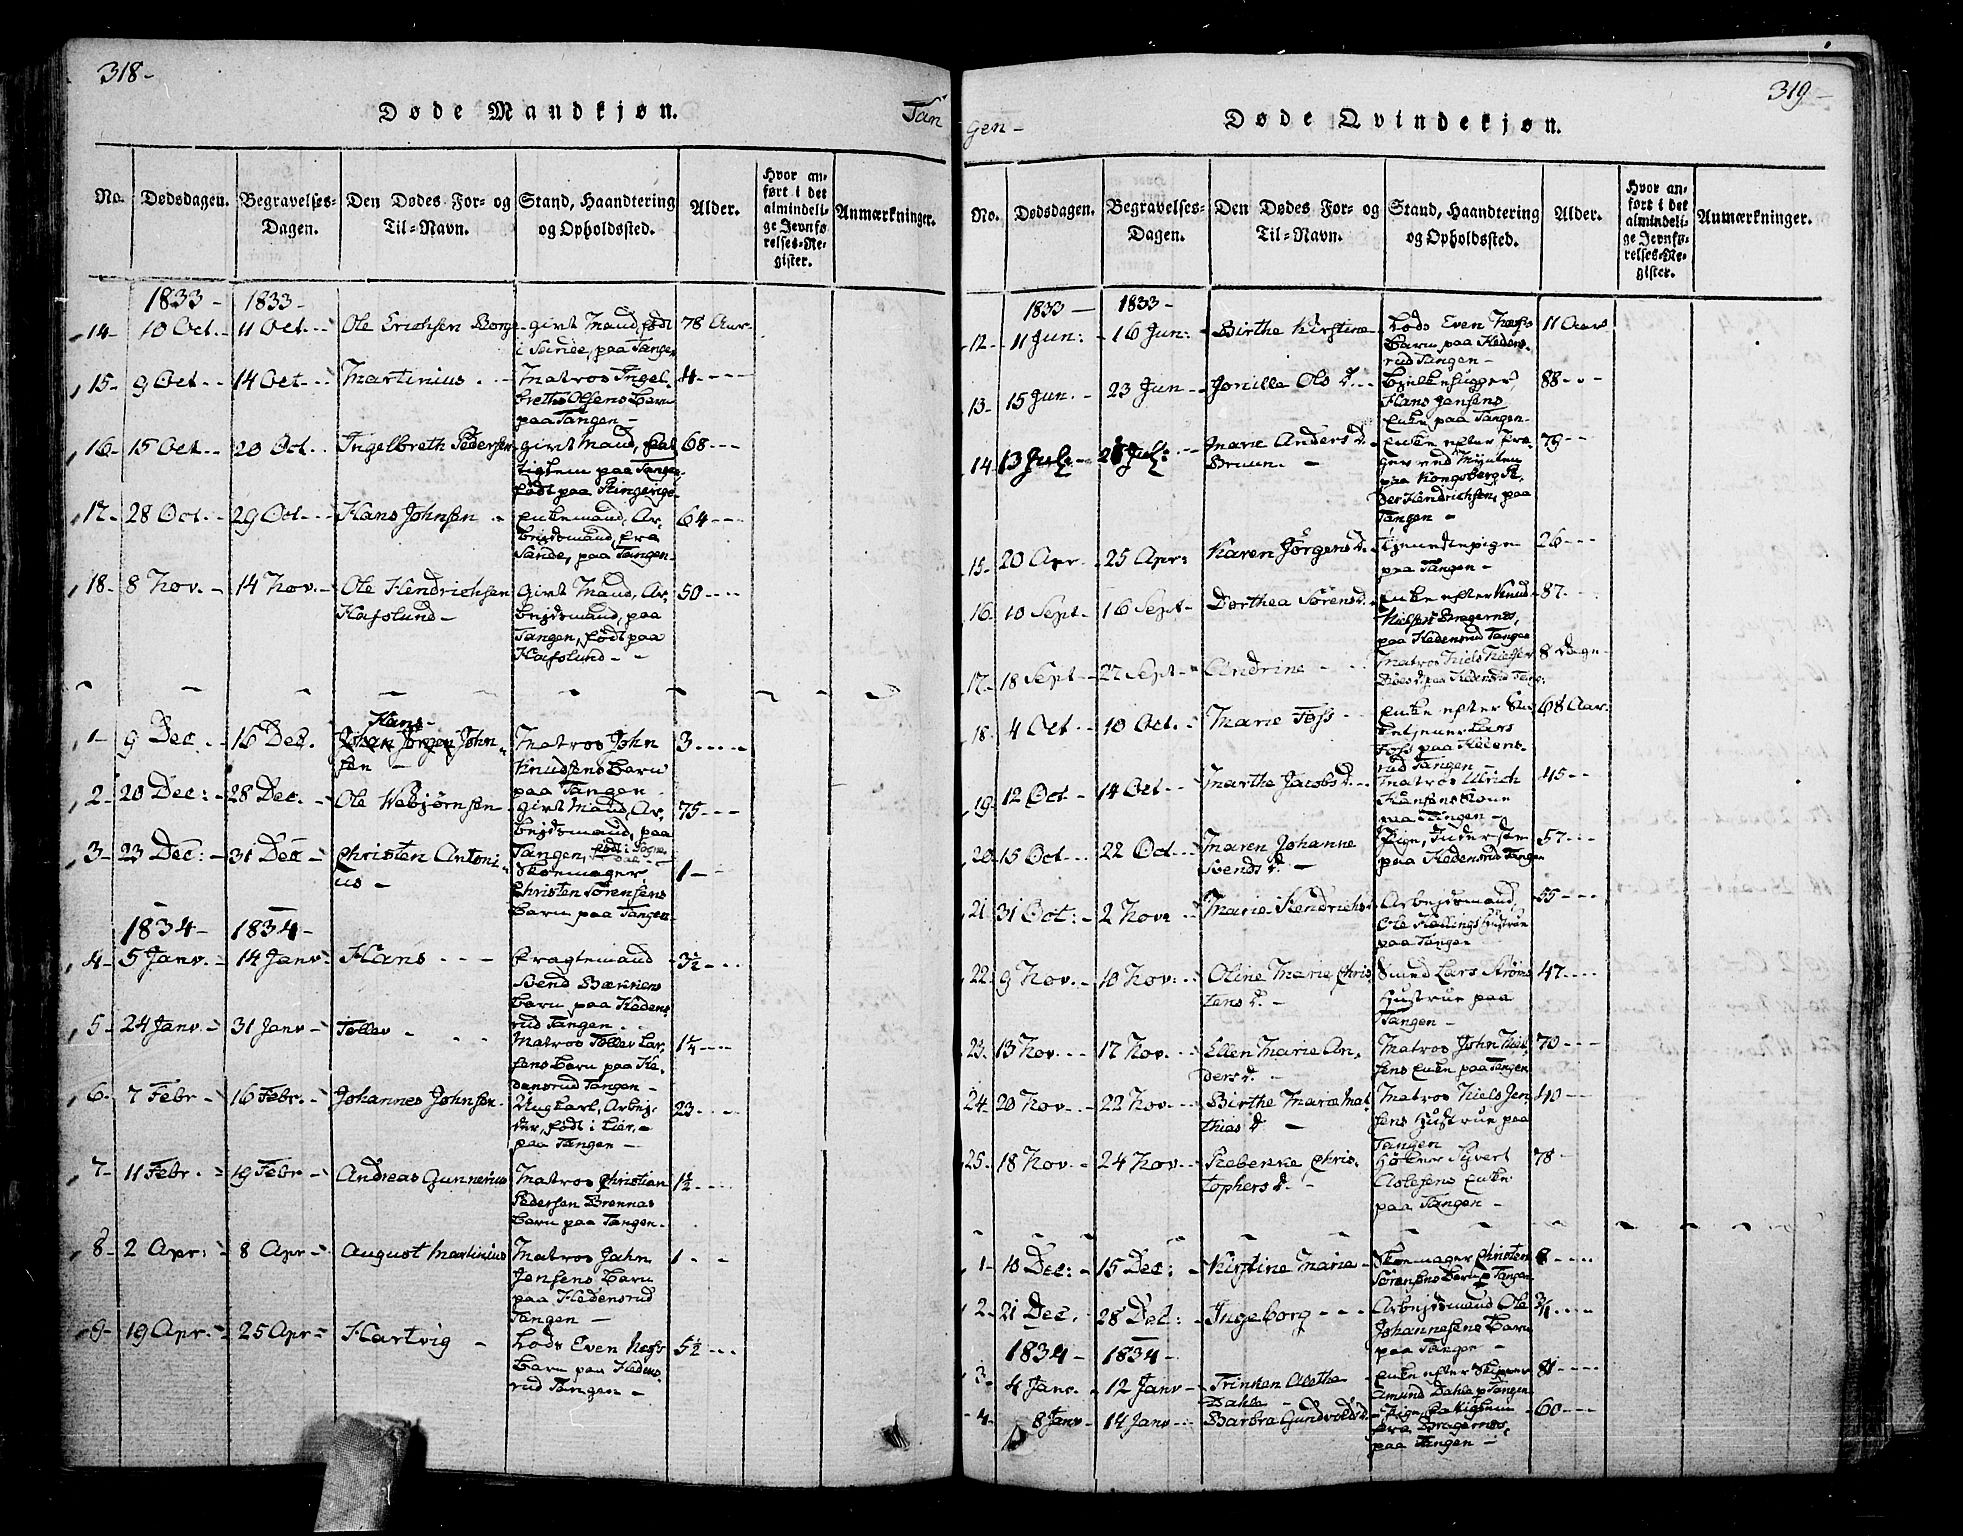 318-
Døde Mandkjøn.
Tan
No.
Dødsdagen.
Begravelses-
Dagen.
Den Dødes For- og
Til-Navn.
Stand, Haandtering
og Opholdssted.
Alder.
Hvor an-
ført i det
almindeli-
ge Jevnfø-
relses-Re-
gister.
Anmærkninger.
1833 - 1833-
14- 10 Oct. - 11 Oct. - Ole Erichsen Borge givt Mand, født 78 Aar
i Sande, paa Tangen
15- 9 Oct. - 14 Oct. - Martinius Matros Ingel- 4
breth Olsens Barn
paa Tangen -
16- 15 Oct. - 20 Oct. Ingelbreth Pedersen givt Mand, fat 68
tiglem paa Tangen,
født paa Ringerige
17- 28 Oct. 29 Oct. - Hans Johnsen Enkemand, Ar- 64
bejdsmand, fra
Sande, paa Tangen.
18- 8 Nov. - 14 Nov. - Ole Hendrichsen givt Mand, Ar- 50
Hafslund - bejdsmand, paa
Tangen, født paa
Hafslund - -
Hans-
1- 9 Dec. - 16 Dec. Johan Jørgen John- Matros John 3
sen - Knudsens Barn
paa Tangen -
2- 20 Dec: - 28 Dec. - Ole Webjørnsen givt Mand, Ar- 75
bejdsmand, paa
Tangen, født i Sogne
dal -
3- 23 Dec: - 31 Dec - Christen Antoni- Skoemager 1
us - Christen Sørensens
Barn paa Tangen
1834- 1834-
4- 5 Janv. - 14 Janv: - Hans - - - Fragtemand 3½
Svend Barn paa Hedens
rud Tangen -
5- 24 Janv. - 31 Janv - Tollev - Matros Tollev Lar- 1¼
sens Barn paa He-
densrud Tangen -
6- 7 Febr - 16 Febr. - Johannes Johnsen. Ungkarl, Arbej- 23
der, født i Lier,
paa Tangen -
7- 11 Febr. - 19 Febr - Andreas Gunnerius Matros Christian 1½
Pedersen Brennas
Barn paa Tangen.
8- 2 Apr: - 8 Apr - August Martinius Matros Jahn 1
Jensens Barn
paa Hedensrud
Tangen -
9- 19 Apr. - 25 Apr - Hartvig - Lods Even Næss 5½
Barn paa Hedens-
rud Tangen -
319-
gen-
Døde Qvindekjøn.
No.
Dødsdagen.
Begravelses-
Dagen.
Den Dødes For- og
Til-Navn.
Stand, Haandtering
og Opholdssted.
Alder.
Hvor an-
ført i det
almindeli-
ge Jevnfø-
relses-Re-
gister.
Anmærkninger.
1833 - 1833-
12- 11 Jun: - 16 Jun: Birthe Kirstine Lods Even Næss 11 Aars
Barn paa Hedens-
rud Tangen -
13- 15 Jun. - 23 Jun - Jonille Ols D. Bjelkehugger 88
Hans Jensens
Enke paa Tangen -
14 13 Jul: - 21 Jul: Marie Anders D. Enke efter 79
Bruun. - ved Mynten
paa Kongsberg Pe-
der Hendrichsen, paa
Tangen -
15- 20 Apr. - 25 Apr: Karen Jørgens D. Tjenestepige 26
paa Tangen -
16. 10 Sept - 16 Sept - Dorthea Sørens D. Enke efter Knud 87.
Nielsen Bragernes,
paa Hedensrud Tangen
17- 18 Sept - 22 Sept - Andrine Matros Niels Nielsen 8 Dage
paa Hedensrud Tang:
18. 4 Oct - 10 Oct. Marie Foss Enke efter 68 Aar.
Lars
Foss paa Hedens-
rud Tangen -
19. 12 Oct - 14 Oct - Marthe Jacobs D. Matros Ulrich 45
Hansens Kone
paa Tangen -
20. 15 Oct. - 22 Oct. Maren Johanne Pige, Inderste 57
Svends D. - paa Hedensrud Tangen
21. 31 Oct: - 2 Nov: Marie Hendrichs D. Arbejdsmand 55
Ole Hustrue
paa Tangen
22. 9 Nov. - 10 Nov: Oline Marie Chris Smed Lars Strøms 47
tens D. - Hustrue paa
Tangen -
23. 13 Nov. - 17 Nov. Ellen Marie An- Matros John Niel- 70
ders D. - sens Enke paa Tangen
24. 20 Nov. - 22 Nov. - Birthe Marie Mat- Matros Niels Jen 40
thias D. - sens Hustrue paa
Tangen
25. 18 Nov. - 24 Nov. - Rebekke Chris- Høker Syvert 78
tophers D. - Aslesens Enke
paa Tangen -
1- 10 Dec: - 15 Dec: - Kirstine Marie - Skoemager Christen
Sørensens Barn p Tangen
2- 21 Dec. 28 Dec: - Ingeborg - - - Arbejdsmand Ole ¾
Johannesens Barn
paa Tangen -
1834 - 1834 -
3- 4 Janv. - 12 Janv - Trinken Alethe Enke efter Skipper 81
Dahle - Amund Dahle p Tangen
4- 8 Janv - 14 Janv - Barbra Gundvolds D. Pige, 60
fra Bragernes,
paa Tangen -